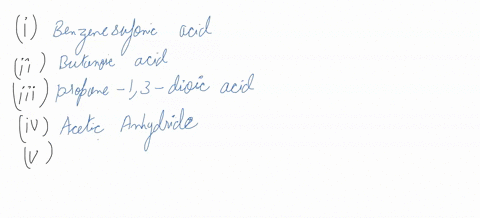 (i) Benzenesulfonic acid
(ii) Butanoic acid
(iii) propane-1,3-dioic acid
(iv) Acetic Anhydride
(v)